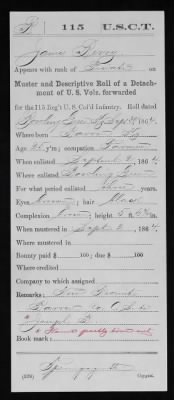 B | 115 | U.S.C.T.
James Berry
Appears with rank of Private on
Muster and Descriptive Roll of a Detach-
ment of U. S. Vols. forwarded
for the 115 Reg't U. S. Col'd Infantry. Roll dated
Bowling Green Ky Sept 186 4.
Where born Barren Ky
Age y'rs; occupation Farmer
When enlisted September 2, 186 4.
Where enlisted Bowling Green
For what period enlisted three years.
Eyes brown; hair black
Complexion ; height 5 ft. in.
When mustered in Sept 2, 186 4.
Where mustered in
Bounty paid $ 100; due $ 100
Where credited
Company to which assigned
Remarks:
Barren Co.
Joseph
Book mark:
(339) Copyist.